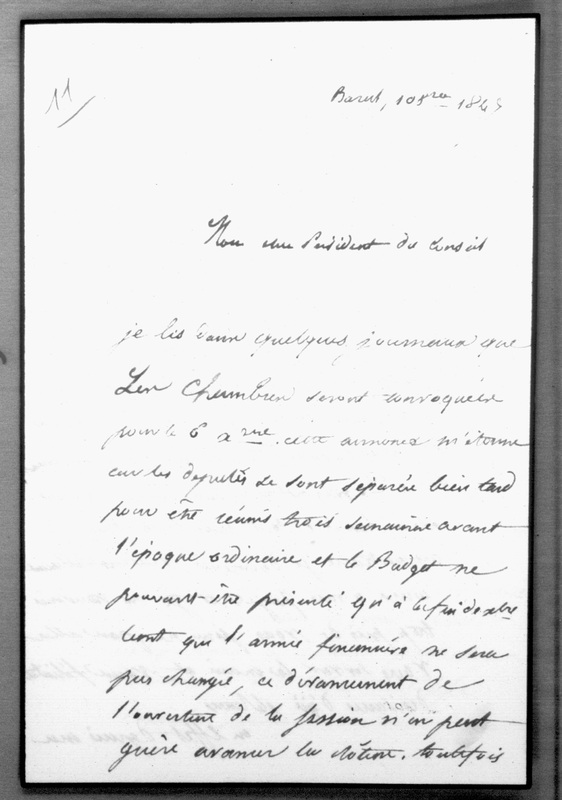 11
Barent, 10 bre 1843
Mon cher Président du Conseil
je lis dans quelques journaux que
Les Chambres seront convoquées
pour le 6 xbre. cette annonce m'étonne
car les députés se sont séparés bien tard
pour être réunis trois semaines avant
l'époque ordinaire et le Budget ne
pouvant être présenté qu'à la fin de xbre
tant que l'année financière ne sera
pas changée, ce devancement de
l'ouverture de la session n'en peut
guère avancer la clôture. toutefois